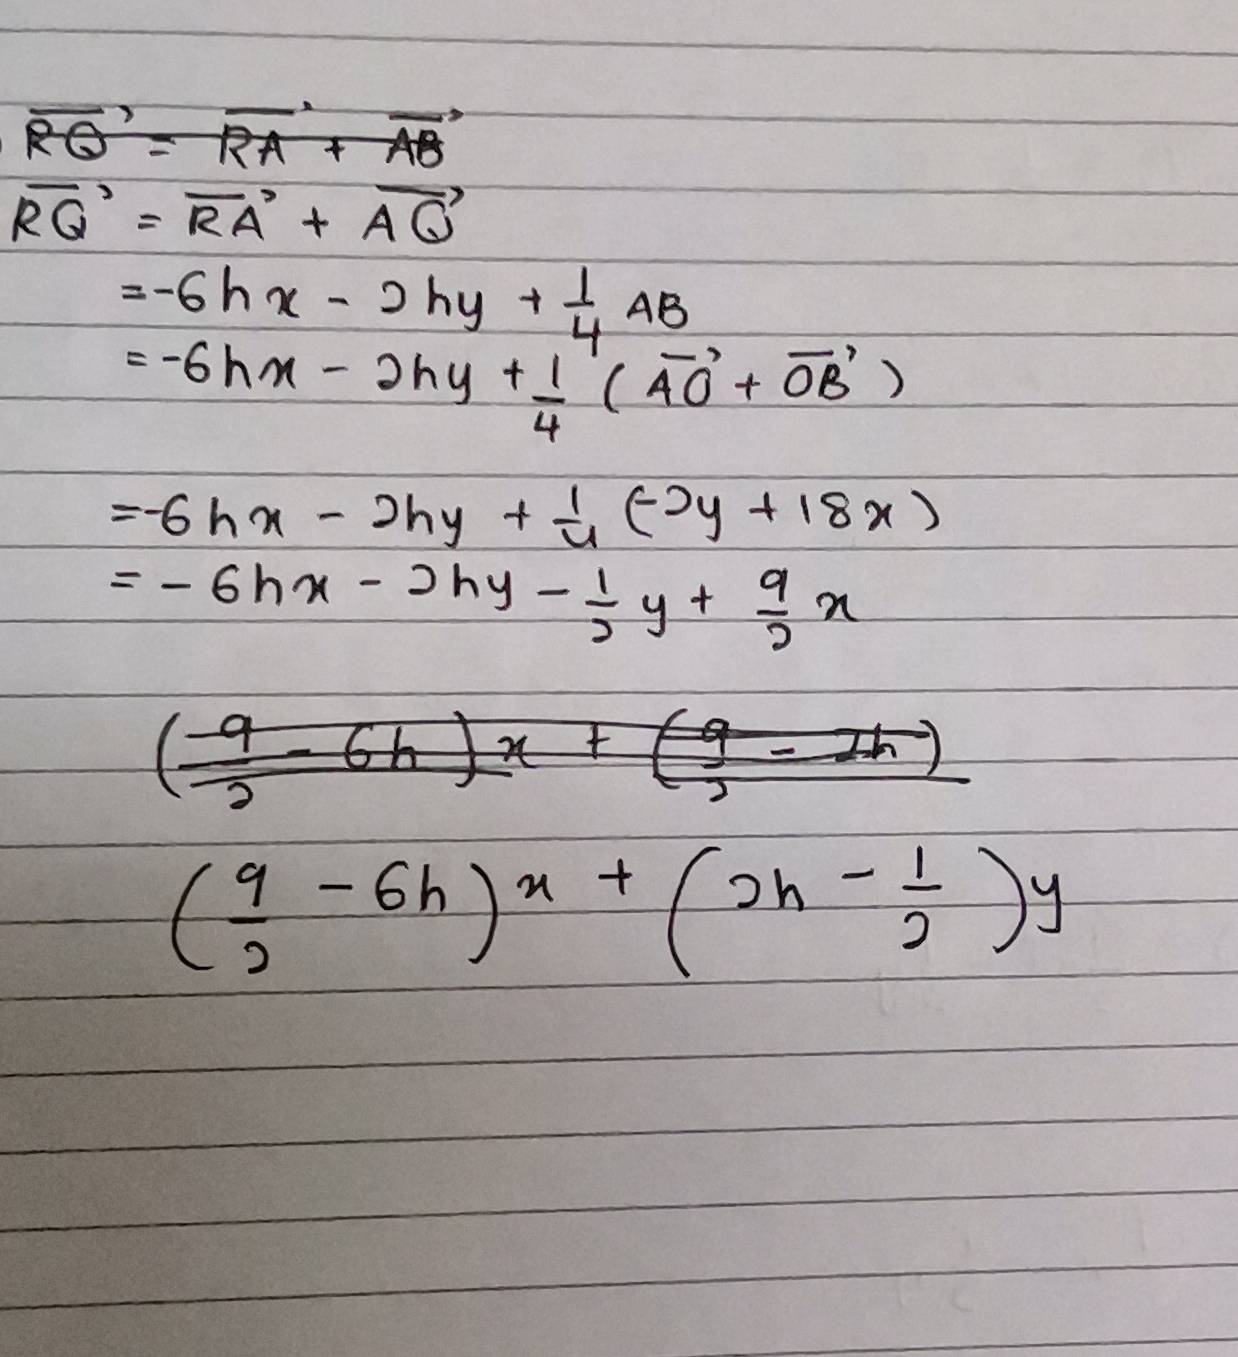 RQ = RA + AB
RQ = RA + AQ
= -6hx - 2hy + 1/4 AB
= -6hx - 2hy + 1/4 (AO + OB)
= -6hx - 2hy + 1/4 (-2y + 18x)
= -6hx - 2hy - 1/2 y + 9/2 x
(9/2 - 6h)x + (9/2 - 2h)
(9/2 - 6h)x + (2h - 1/2)y